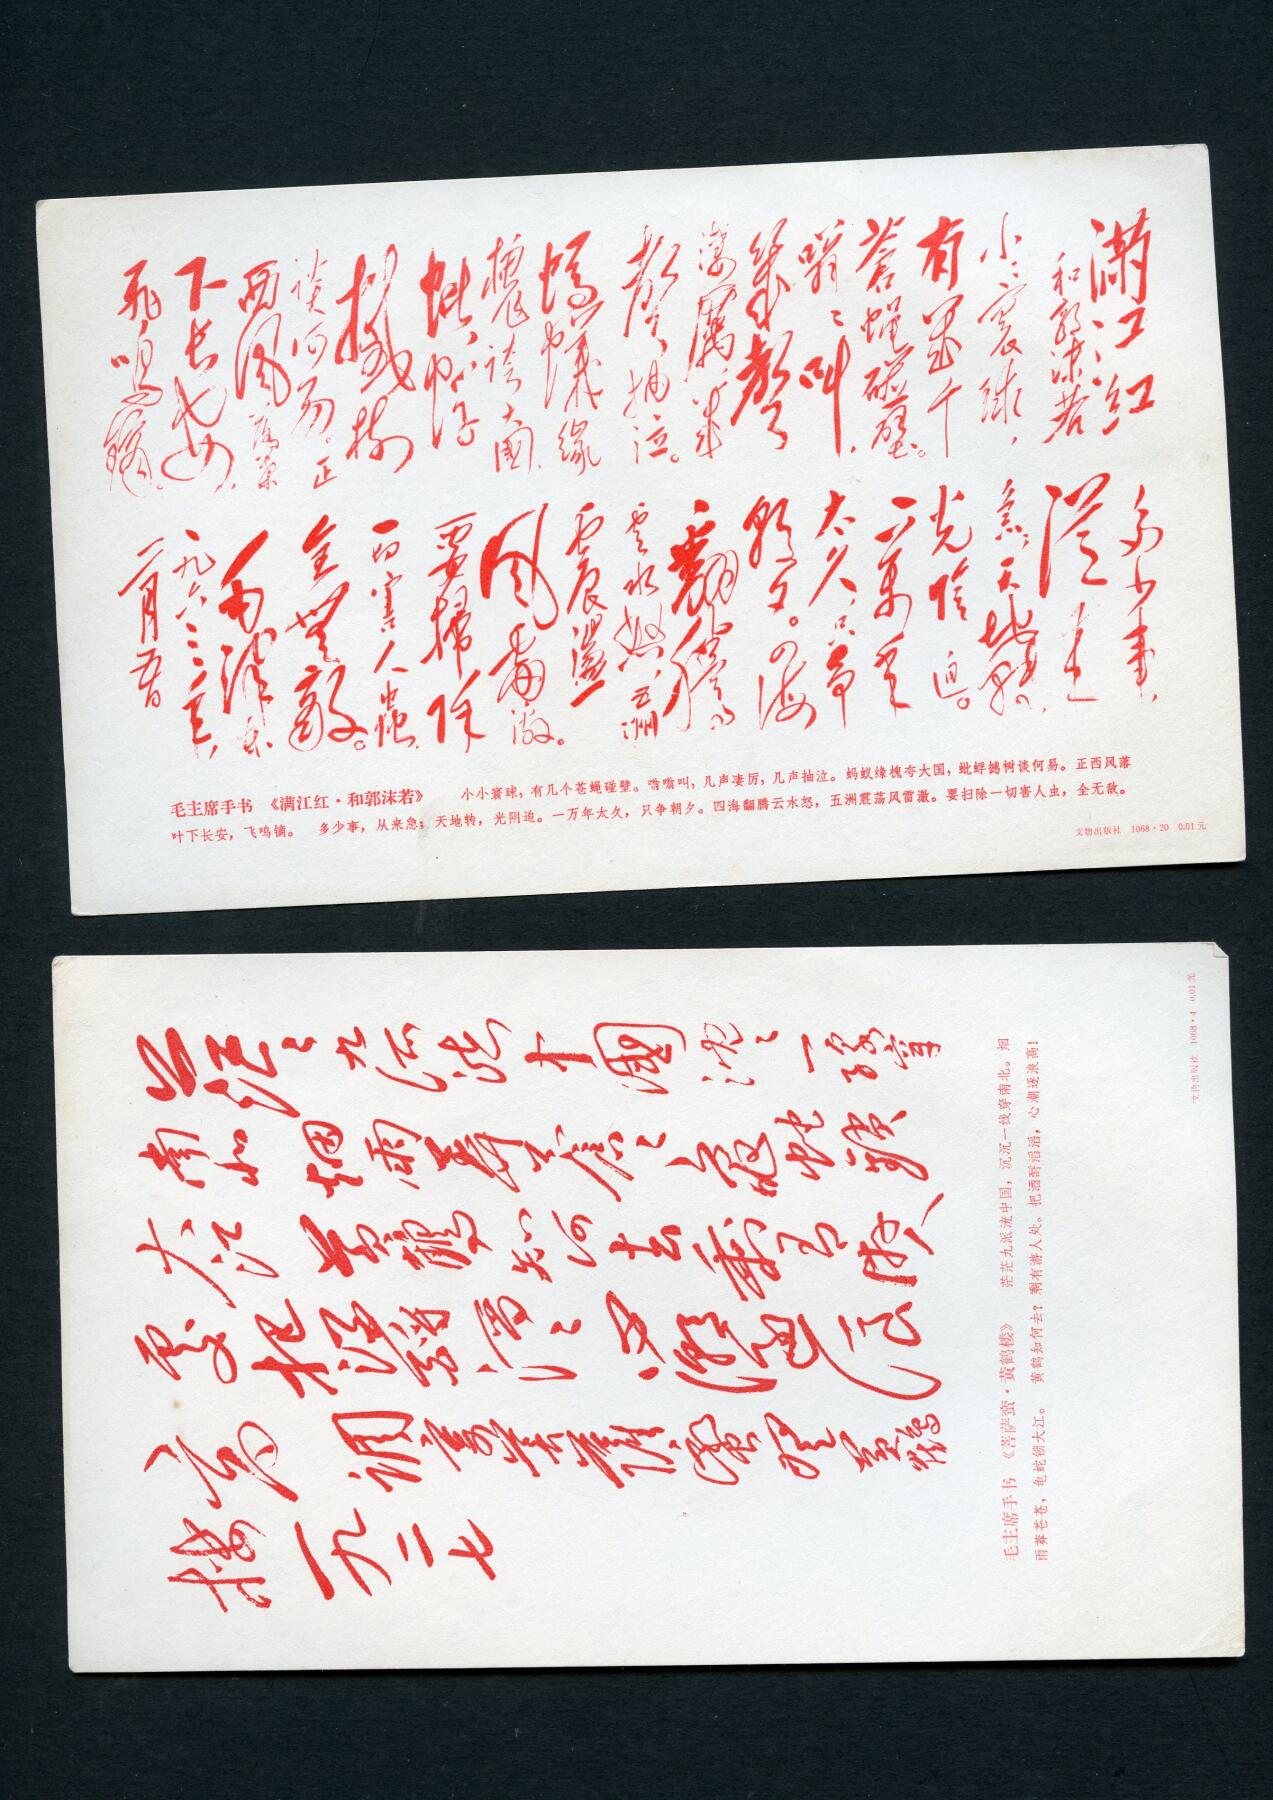 滿江紅
和郭沫若
小小寰球，
有幾个
蒼蠅碰壁。
嗡嗡叫，
幾聲
凄厲，幾
聲抽泣。
螞蟻緣
槐誇大國，
蚍蜉
撼樹
談何易。正
西風落葉
下長安，
飛鳴鏑。
多少事，
從來
急；天地轉，
光陰迫。
一萬年
太久，只争
朝夕。四海
翻騰
雲水怒，五洲
震盪
風雷激。
要掃除
一切害人蟲，
全無敵。
毛澤東
一九六三年
二月五日
毛主席手书 《满江红·和郭沫若》 小小寰球，有几个苍蝇碰壁。嗡嗡叫，几声凄厉，几声抽泣。蚂蚁缘槐夸大国，蚍蜉撼树谈何易。正西风落
叶下长安，飞鸣镝。 多少事，从来急；天地转，光阴迫。一万年太久，只争朝夕。四海翻腾云水怒，五洲震荡风雷激。要扫除一切害人虫，全无敌。
文物出版社 1068·20 0.01元
茫茫九派流中國沉沉一綫穿
南北烟雨莽蒼蒼龜蛇鎖
大江黃鶴知何去剩有游人
處把酒酹滔滔心潮逐浪
高 調寄菩薩蠻 登黃鶴
樓 一九二七
毛主席手书 《菩萨蛮·黄鹤楼》 茫茫九派流中国，沉沉一线穿南北。烟
雨莽苍苍，龟蛇锁大江。 黄鹤知何去？剩有游人处。把酒酹滔滔，心潮逐浪高！
文物出版社 1068·4 0.01元